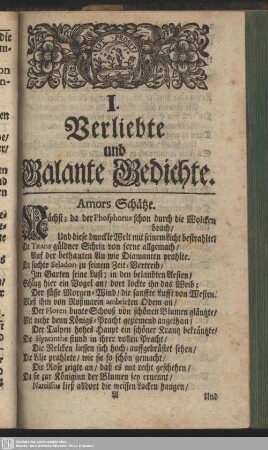 I.
Verliebte
und
Galante Gedichte.
Amors Schätze.
Nächst: da der Phosphorus schon durch die Wolcken
brach/
Und diese dunckle Welt mit seinem Licht bestrahlet
Da Titans güldner Schein von ferne allgemach/
Auf der bethauten Au wie Diamanten prahlt.
Da suchte Seladon zu seinem Zeit-Vertreib/
Im Garten seine Lust; in den belaubten Aesten/
Schlug hier ein Vogel an/ dort lockte ihn das Weib:
Der süsse Morgen-Wind/ die sanffte Lufft von Westen.
Blies ihm von Roßmarin Odem an/
Der Floren bunte Schooß von schönen Blumen gläntzte/
An mehr denn Königs-Pracht geziemend angethan/
Der Tulpen hohes Haupt ein schöner Krantz bekräntzte/
Die Hyacinthe stund in ihrer vollen Pracht/
Die Nelcken liessen sich hoch/ auffgebrüstet sehen/
Die Lilje prahlete/ wie sie so schön gemacht/
Die Rose zeigte an/ daß es mit recht geschehen/
Da sie zur Königinn der Blumen sey ernennt/
Narcissus ließ alldort die weissen Locken hangen/
A
Und